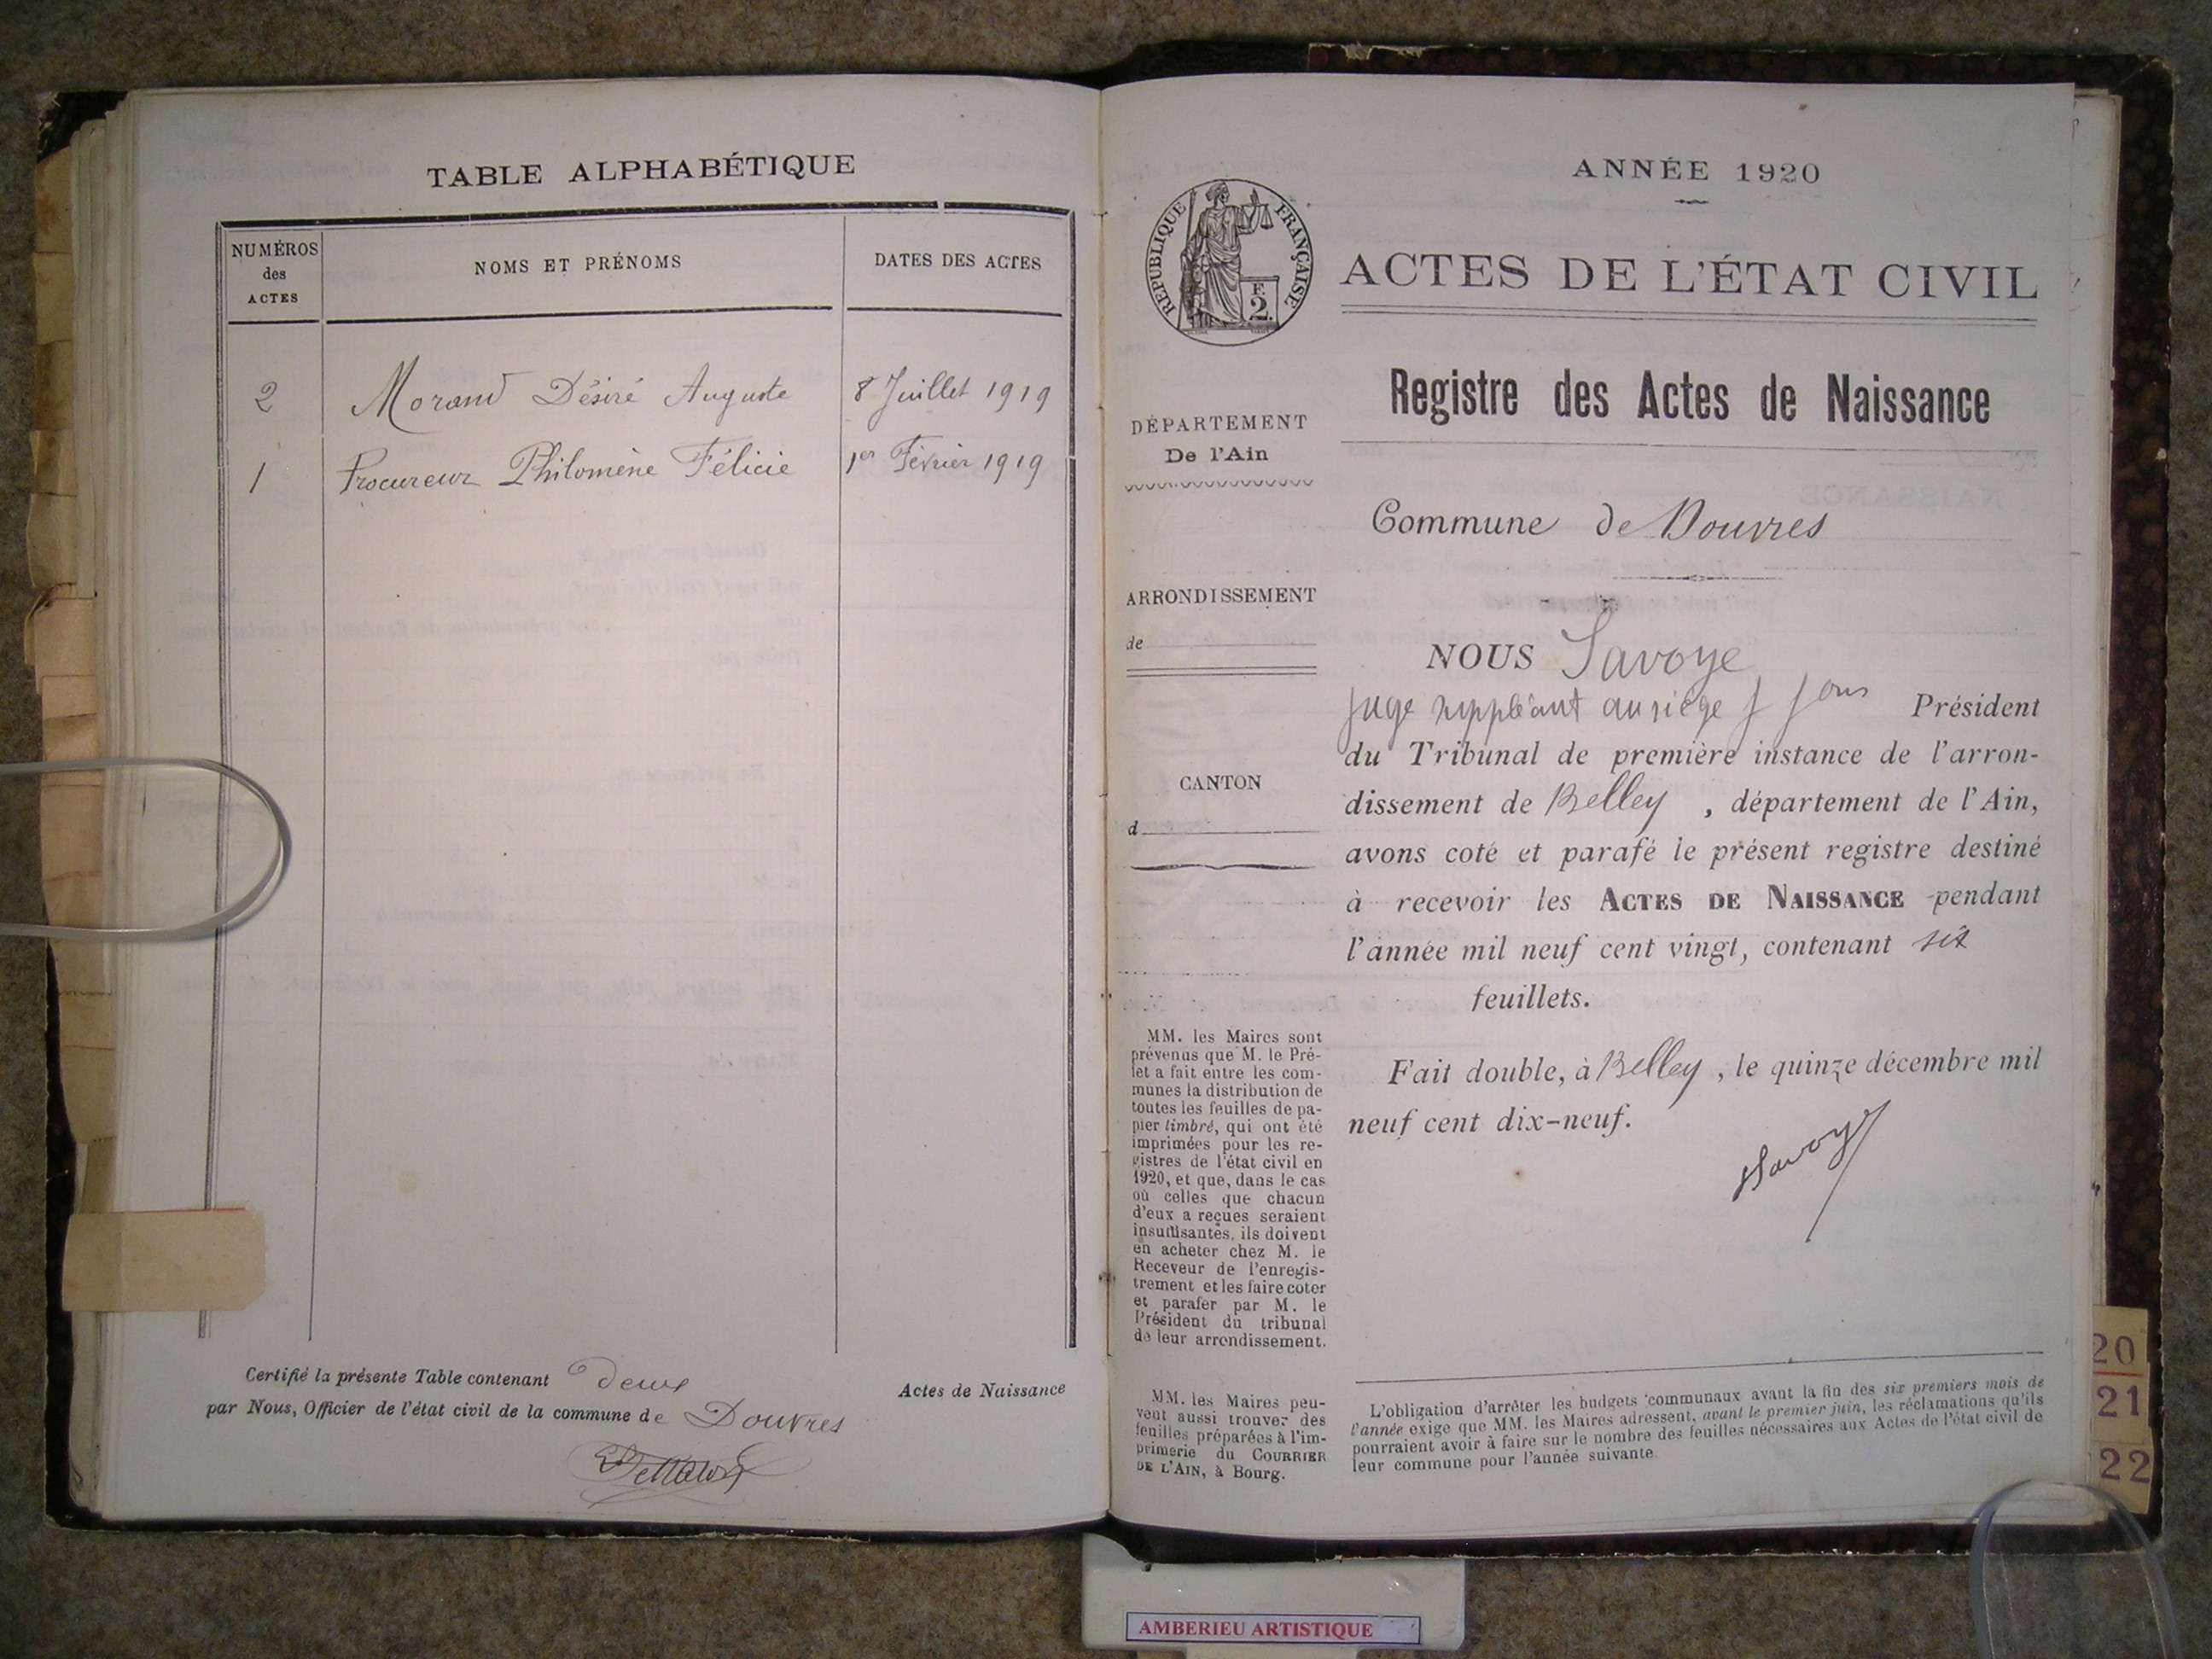 TABLE ALPHABÉTIQUE
NUMÉROS
des
ACTES
NOMS ET PRÉNOMS
DATES DES ACTES
2 Morand Désiré Auguste 8 Juillet 1919
1 Procureur Philomène Félicie 1er Février 1919
Certifié la présente Table contenant deux Actes de Naissance
par Nous, Officier de l'état civil de la commune de Douvres
ANNÉE 1920
RÉPUBLIQUE FRANÇAISE
F.
2.
ACTES DE L'ÉTAT CIVIL
Registre des Actes de Naissance
DÉPARTEMENT
De l'Ain
Commune de Douvres
ARRONDISSEMENT
de
CANTON
d
NOUS Savoye
Juge suppléant au siège Président
du Tribunal de première instance de l'arron-
dissement de Belley, département de l'Ain,
avons coté et parafé le présent registre destiné
à recevoir les ACTES DE NAISSANCE pendant
l'année mil neuf cent vingt, contenant six
feuillets.
Fait double, à Belley, le quinze décembre mil
neuf cent dix-neuf.
Savoye
MM. les Maires sont
prévenus que M. le Pré-
fet a fait entre les com-
munes la distribution de
toutes les feuilles de pa-
pier timbré, qui ont été
imprimées pour les re-
gistres de l'état civil en
1920, et que, dans le cas
où celles que chacun
d'eux a reçues seraient
insuffisantes, ils doivent
en acheter chez M. le
Receveur de l'enregis-
trement et les faire coter
et parafer par M. le
Président du tribunal
de leur arrondissement.
MM. les Maires peu-
vent aussi trouver des
feuilles préparées à l'im-
primerie du COURRIER
DE L'AIN, à Bourg.
L'obligation d'arrêter les budgets communaux avant la fin des six premiers mois de
l'année exige que MM. les Maires adressent, avant le premier juin, les réclamations qu'ils
pourraient avoir à faire sur le nombre des feuilles nécessaires aux Actes de l'état civil de
leur commune pour l'année suivante.
20
21
22
AMBERIEU ARTISTIQUE